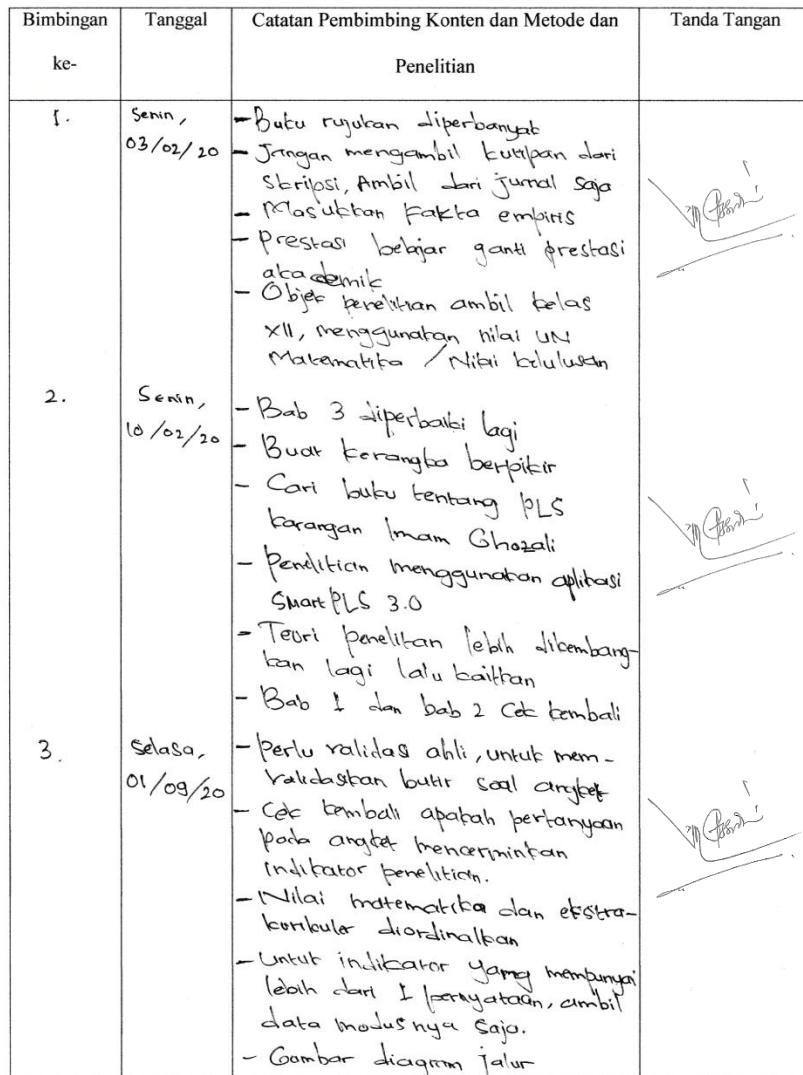 Bimbingan ke-
Tanggal
Catatan Pembimbing Konten dan Metode dan Penelitian
Tanda Tangan
1.
Senin,
03/02/20
- Buku rujukan diperbanyak
- Jangan mengambil kutipan dari
skripsi, Ambil dari jurnal saja
- Masukkan Fakta empiris
- Prestasi belajar ganti prestasi
akademik
- Objek penelitian ambil kelas
XII, menggunakan nilai UN
Matematika / Nilai kelulusan
2.
Senin,
10/02/20
- Bab 3 diperbaiki lagi
- Buat kerangka berpikir
- Cari buku tentang PLS
karangan Imam Ghozali
- Penelitian menggunakan aplikasi
SmartPLS 3.0
- Teori penelitan lebih dikembang-
kan lagi lalu kaitkan
- Bab 1 dan bab 2 Cek kembali
3.
Selasa,
01/09/20
- Perlu validasi ahli, untuk mem-
validasikan butir soal angket
- Cek kembali apakah pertanyaan
pada angket mencerminkan
indikator penelitian.
- Nilai matematika dan ekstra-
kurikuler diordinalkan
- Untuk indikator yang mempunyai
lebih dari 1 pernyataan, ambil
data modusnya saja.
- Gambar diagram jalur